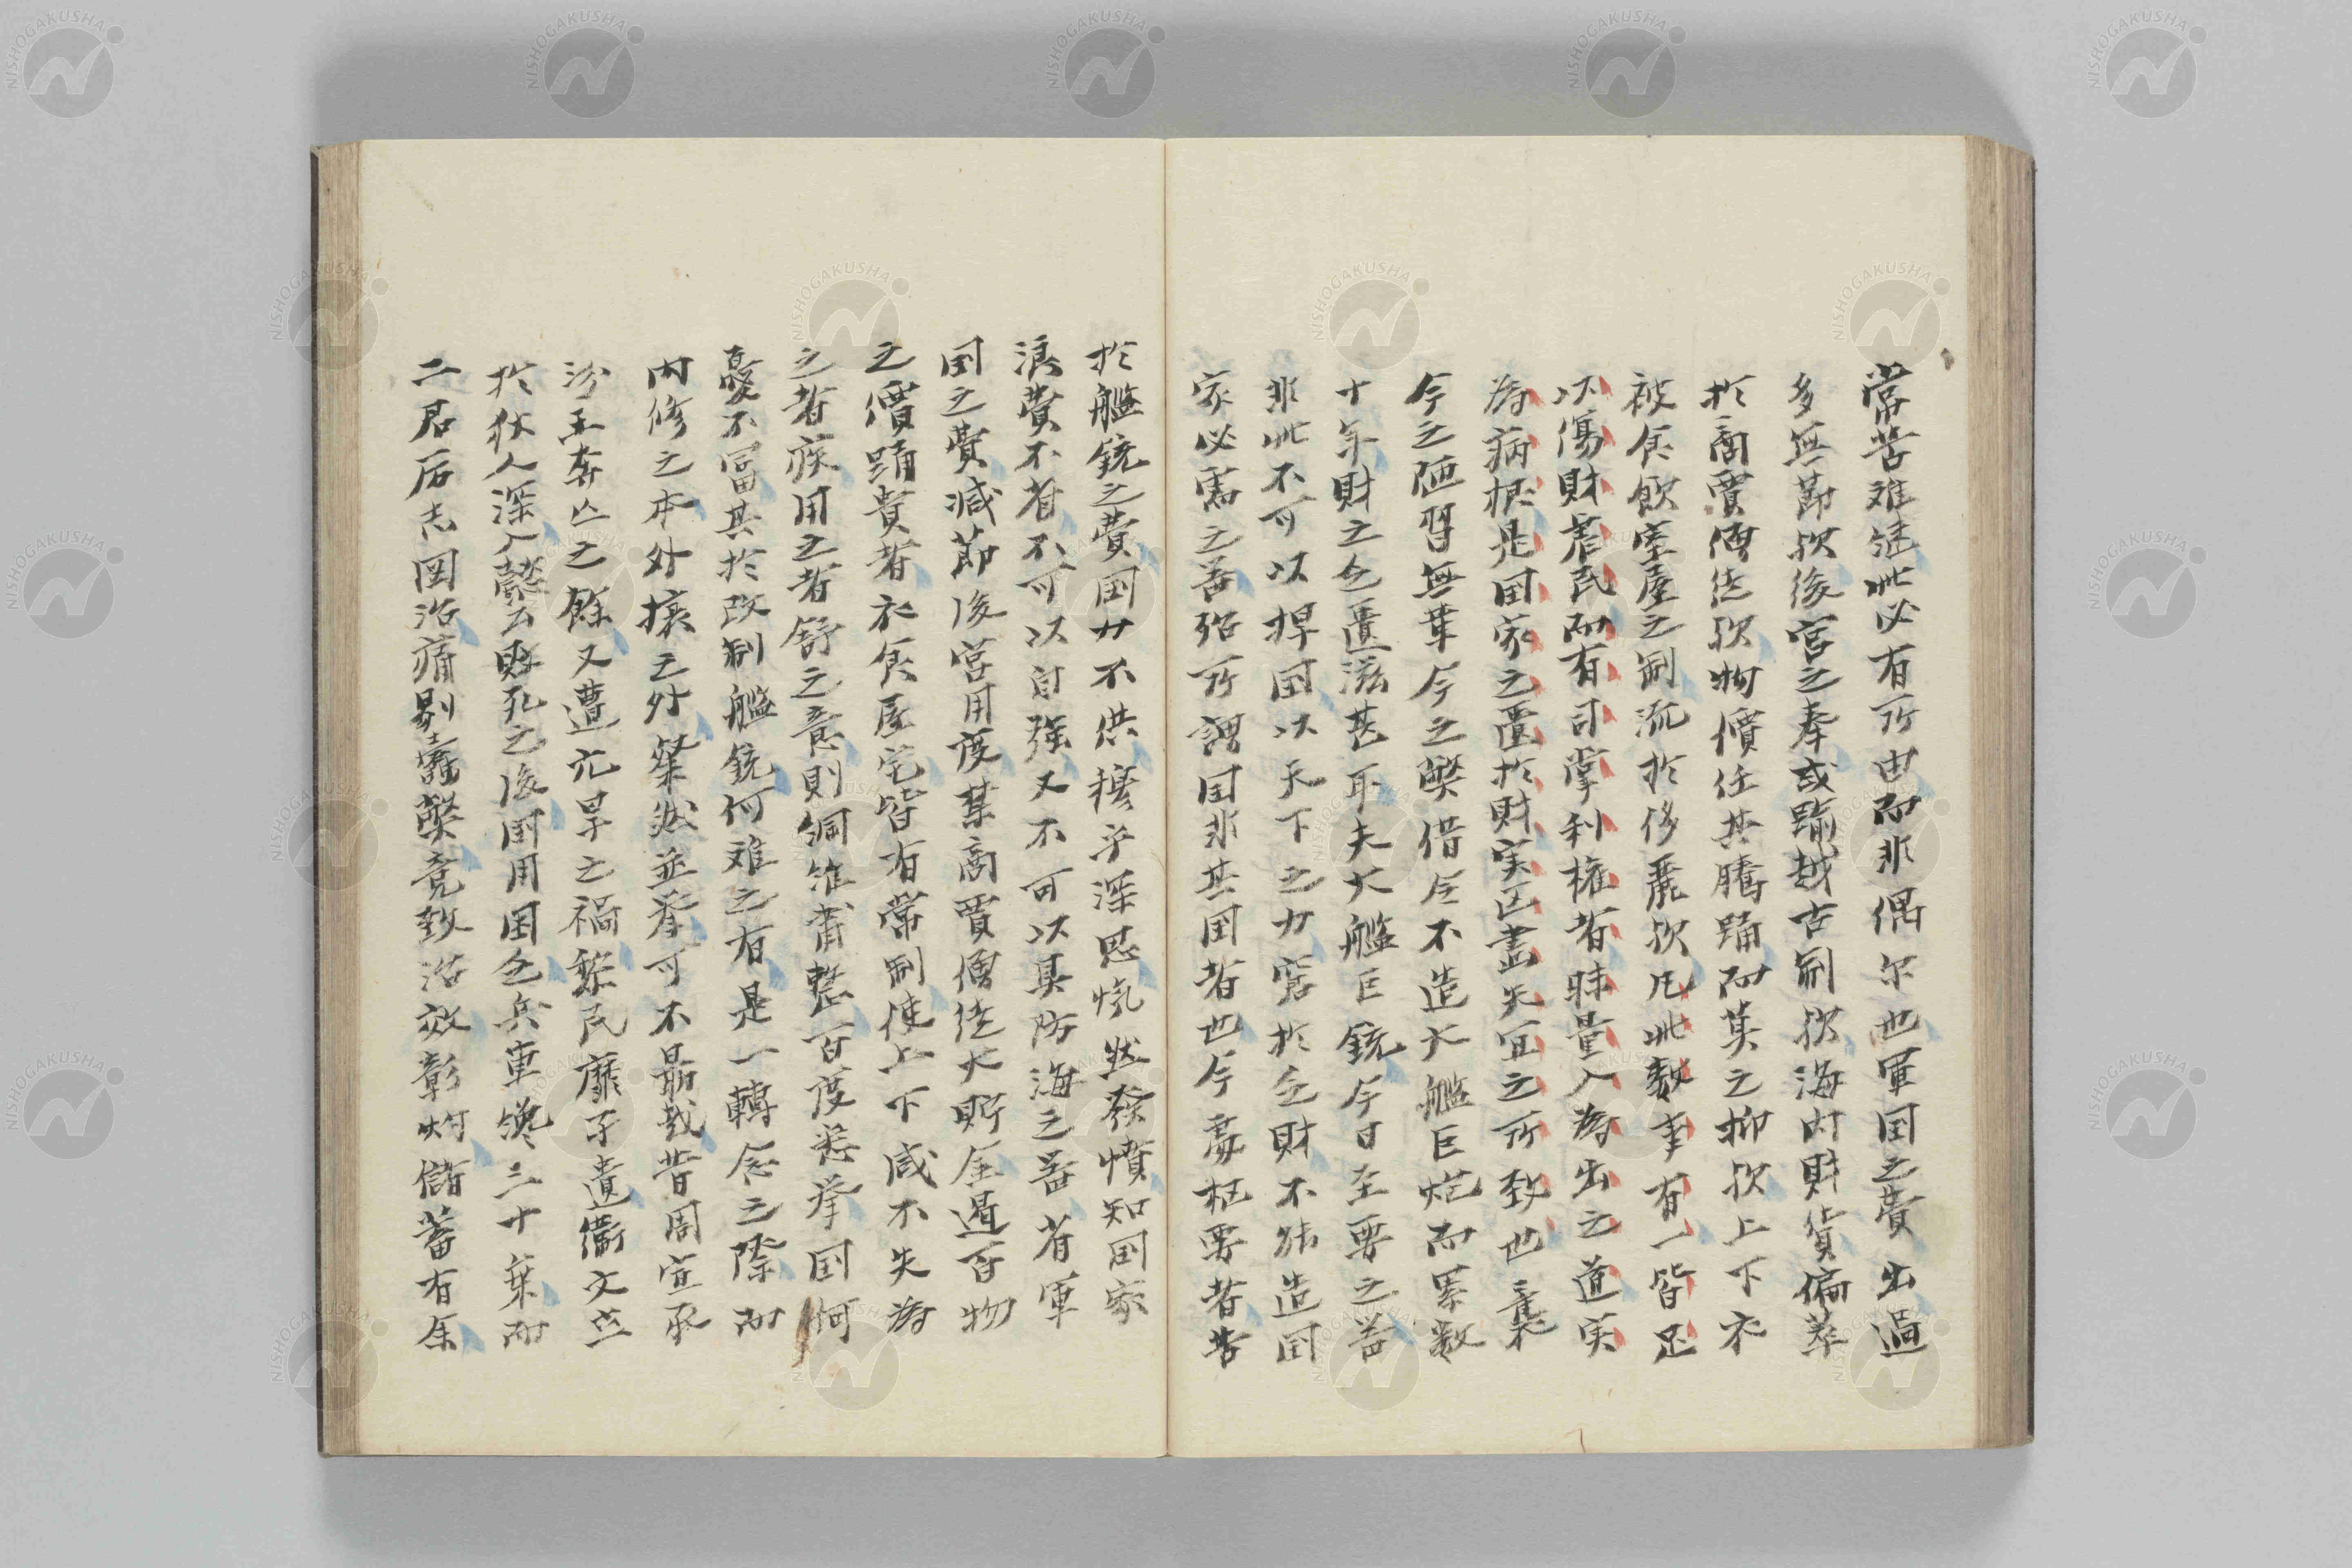 常苦难逹此必有所由而非偶尔也軍国之費出過
多無莭欤後宮之奉或踰越古制欤海内財貨偏萃
於商賈僧徒欤物價任其騰踊而莫之抑欤上下衣
被食飲室屋之制流於侈麗欤凡此数事有一皆足
以傷財害民而有司掌利権者昧量入為出之道実
為病根是国家之匱於財実匹盡矣宜之所致也棄
今之陋習無革今之弊借令不造大艦巨炮而累数
十年財之乏匱滋甚耳夫大艦巨銃今日至要之器
非此不可以捍国以天下之力窘於乏財不能造国
家必需之器殆所謂国非其国者也今處枢要者苦
於艦銃之費国力不供擾乎深思慌然發憤知国家
浪費不省不可以自强又不可以具防海之器省軍
国之費減節後宮用度禁商賈僧徒大貯金過百物
之價踊貴者衣食屋宅皆有常制使上下咸不失為
之者疾用之者舒之意則綱維肅整百度悉挙国何
憂不冨其於改制艦銃何难之有是一轉念之際而
内修之本外攘之外粲然並挙可不勗哉昔周宣承
汾王奔亾之餘又遭亢旱之禍黎民靡孑遺衞文立
於狄人深入懿公敗死之後国用困乏兵車纔三十乗而
二君厉志図治痛剔蠹弊竟致治效彰灼儲蓄有余